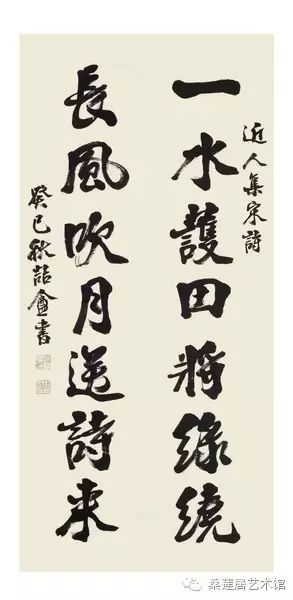 近人集宋詩
一水護田將綠繞
長風吹月送詩来
癸巳秋盦書
桑莲居艺术馆